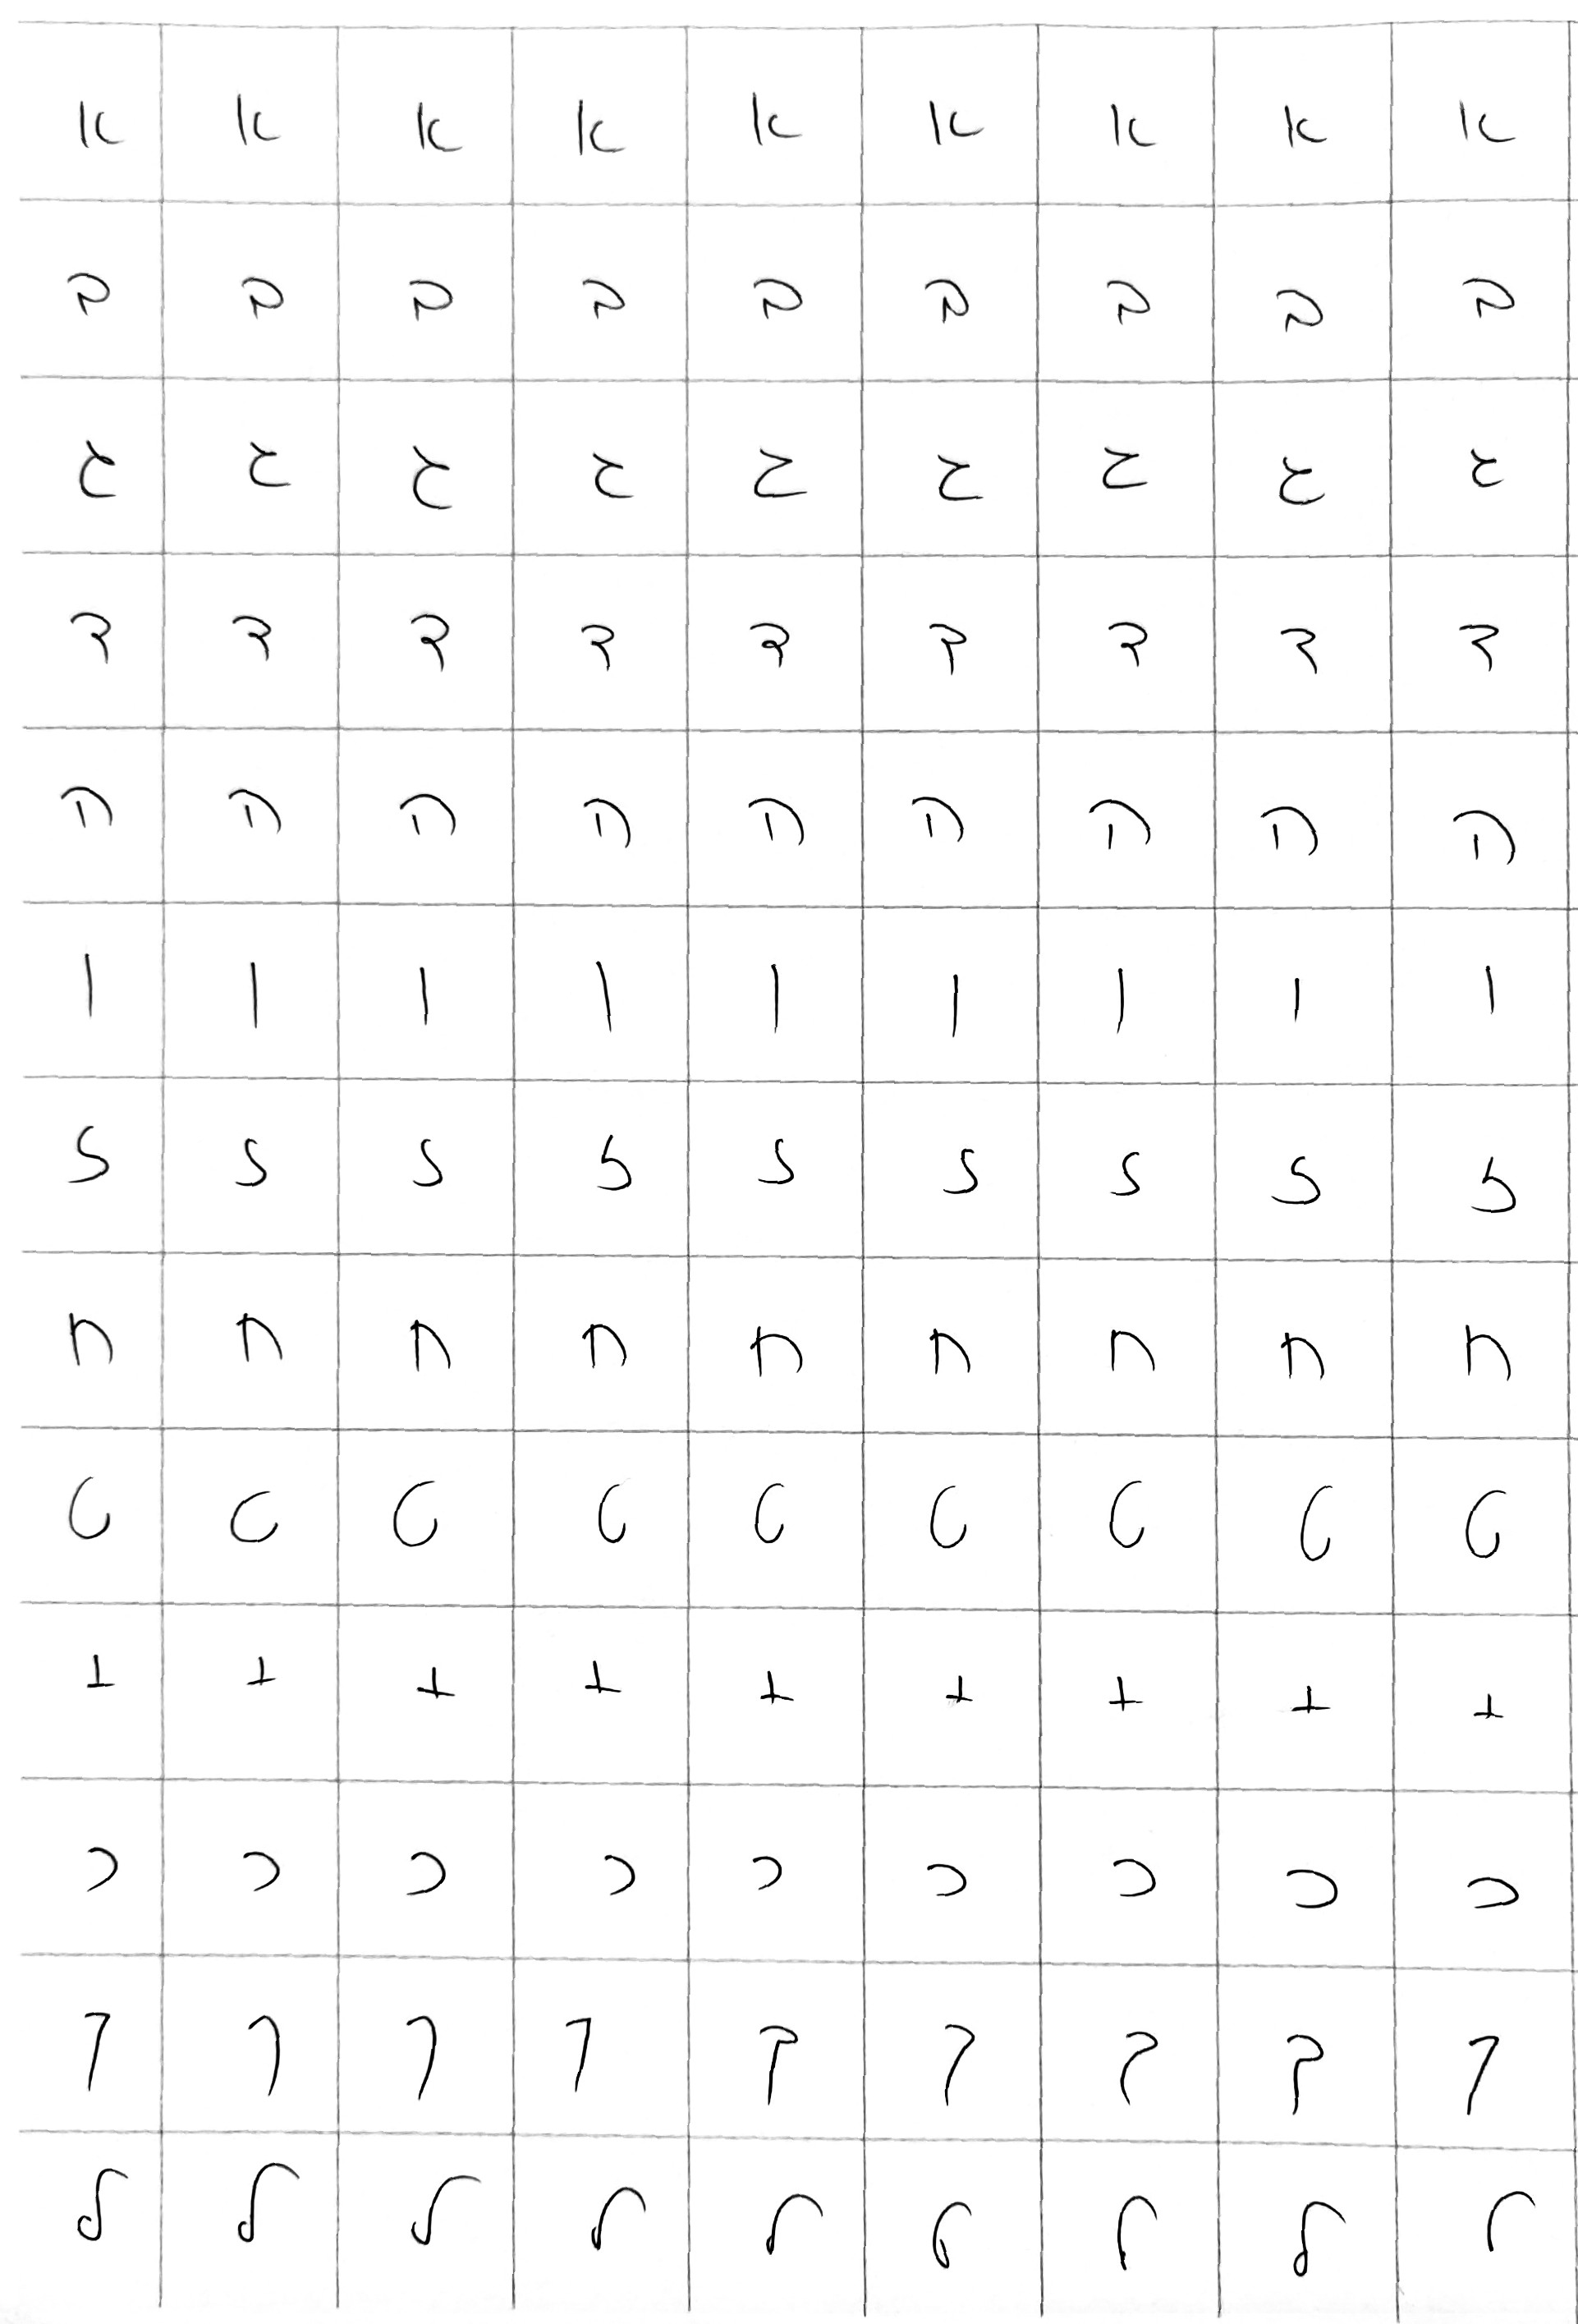 א א א א א א א א א
ב ב ב ב ב ב ב ב ב
ג ג ג ג ג ג ג ג ג
ד ד ד ד ד ד ד ד ד
ה ה ה ה ה ה ה ה ה
ו ו ו ו ו ו ו ו ו
ז ז ז ז ז ז ז ז ז
ח ח ח ח ח ח ח ח ח
ט ט ט ט ט ט ט ט ט
﬩ ﬩ ﬩ ﬩ ﬩ ﬩ ﬩ ﬩ ﬩
כ כ כ כ כ כ כ כ כ
ך ך ך ך ך ך ך ך ך
ל ל ל ל ל ל ל ל ל